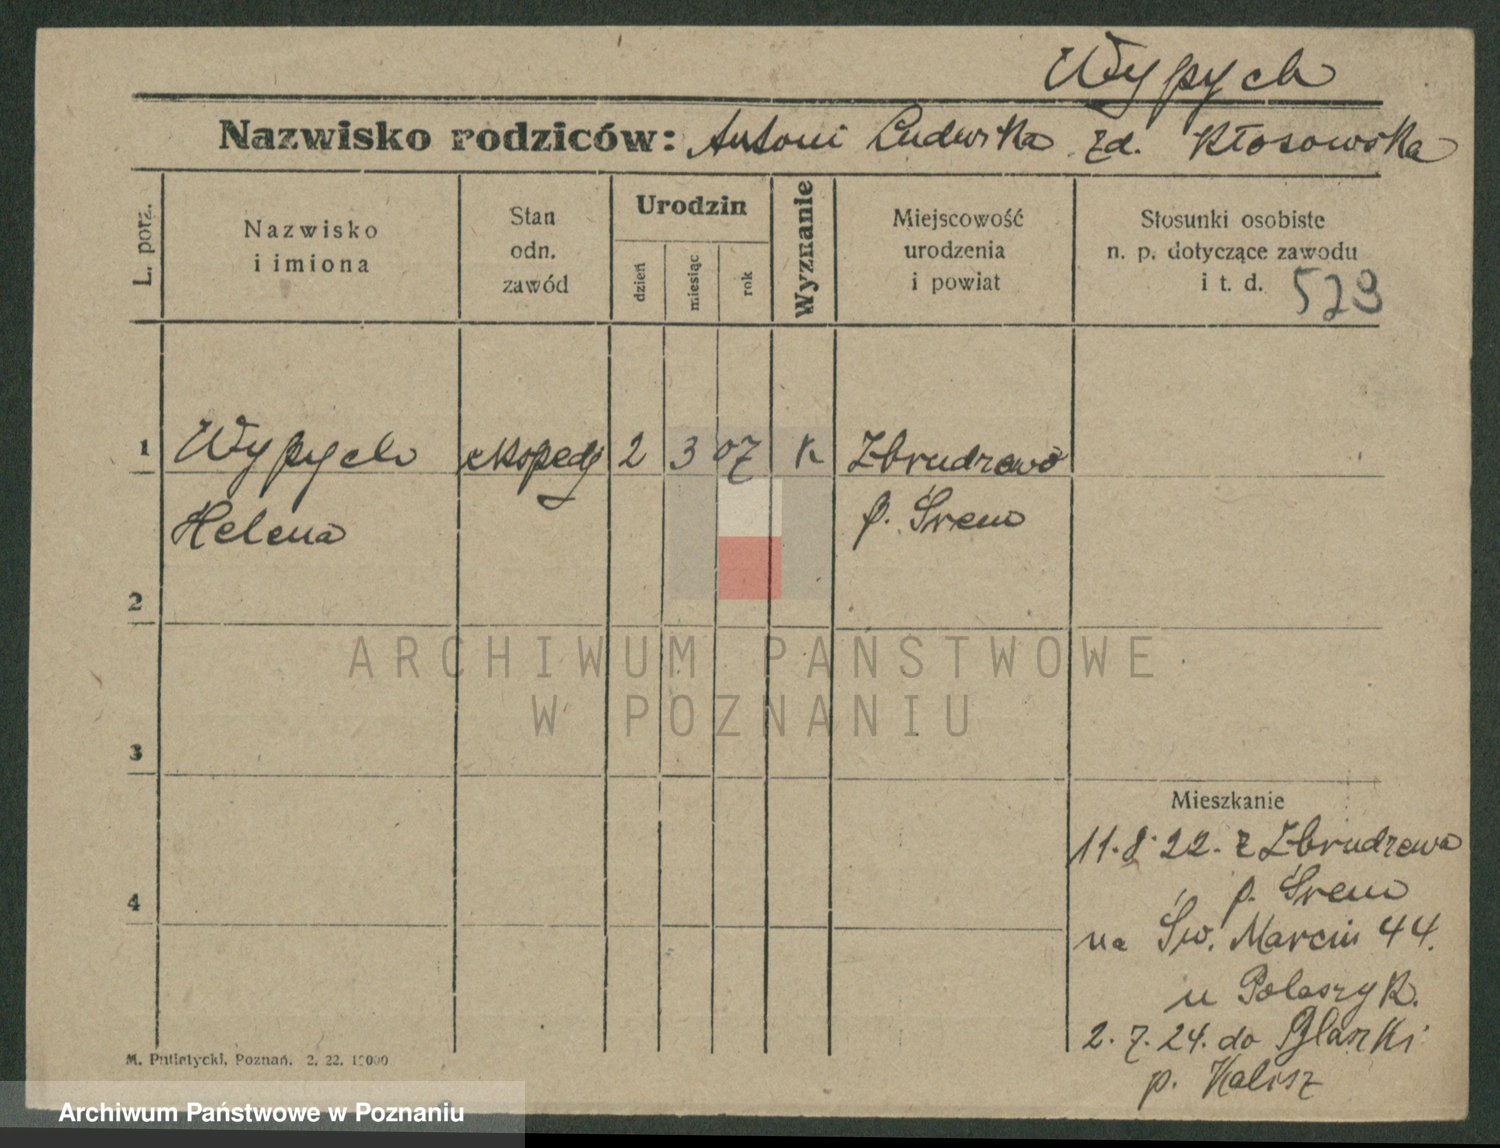 Wypych
Nazwisko rodziców: Antoni Ludwika zd. Kłosowska
L. porz.
Nazwisko
i imiona
Stan
odn.
zawód
Urodzin
dzień
miesiąc
rok
Wyznanie
Miejscowość
urodzenia
i powiat
Stosunki osobiste
n. p. dotyczące zawodu
i t. d. 529
1 Wypych ekspedj 2 3 07 K Zbrudzewo
Helena p. Śrem
2
3
4
ARCHIWUM PAŃSTWOWE
W POZNANIU
Mieszkanie
11.8.22. z Zbrudzewa
p. Śrem
na Św. Marcin 44.
u Polaszyk.
2.7.24. do Blaszki
p. Kalisz
M. Putiatycki, Poznań. 2. 22. 10000
Archiwum Państwowe w Poznaniu